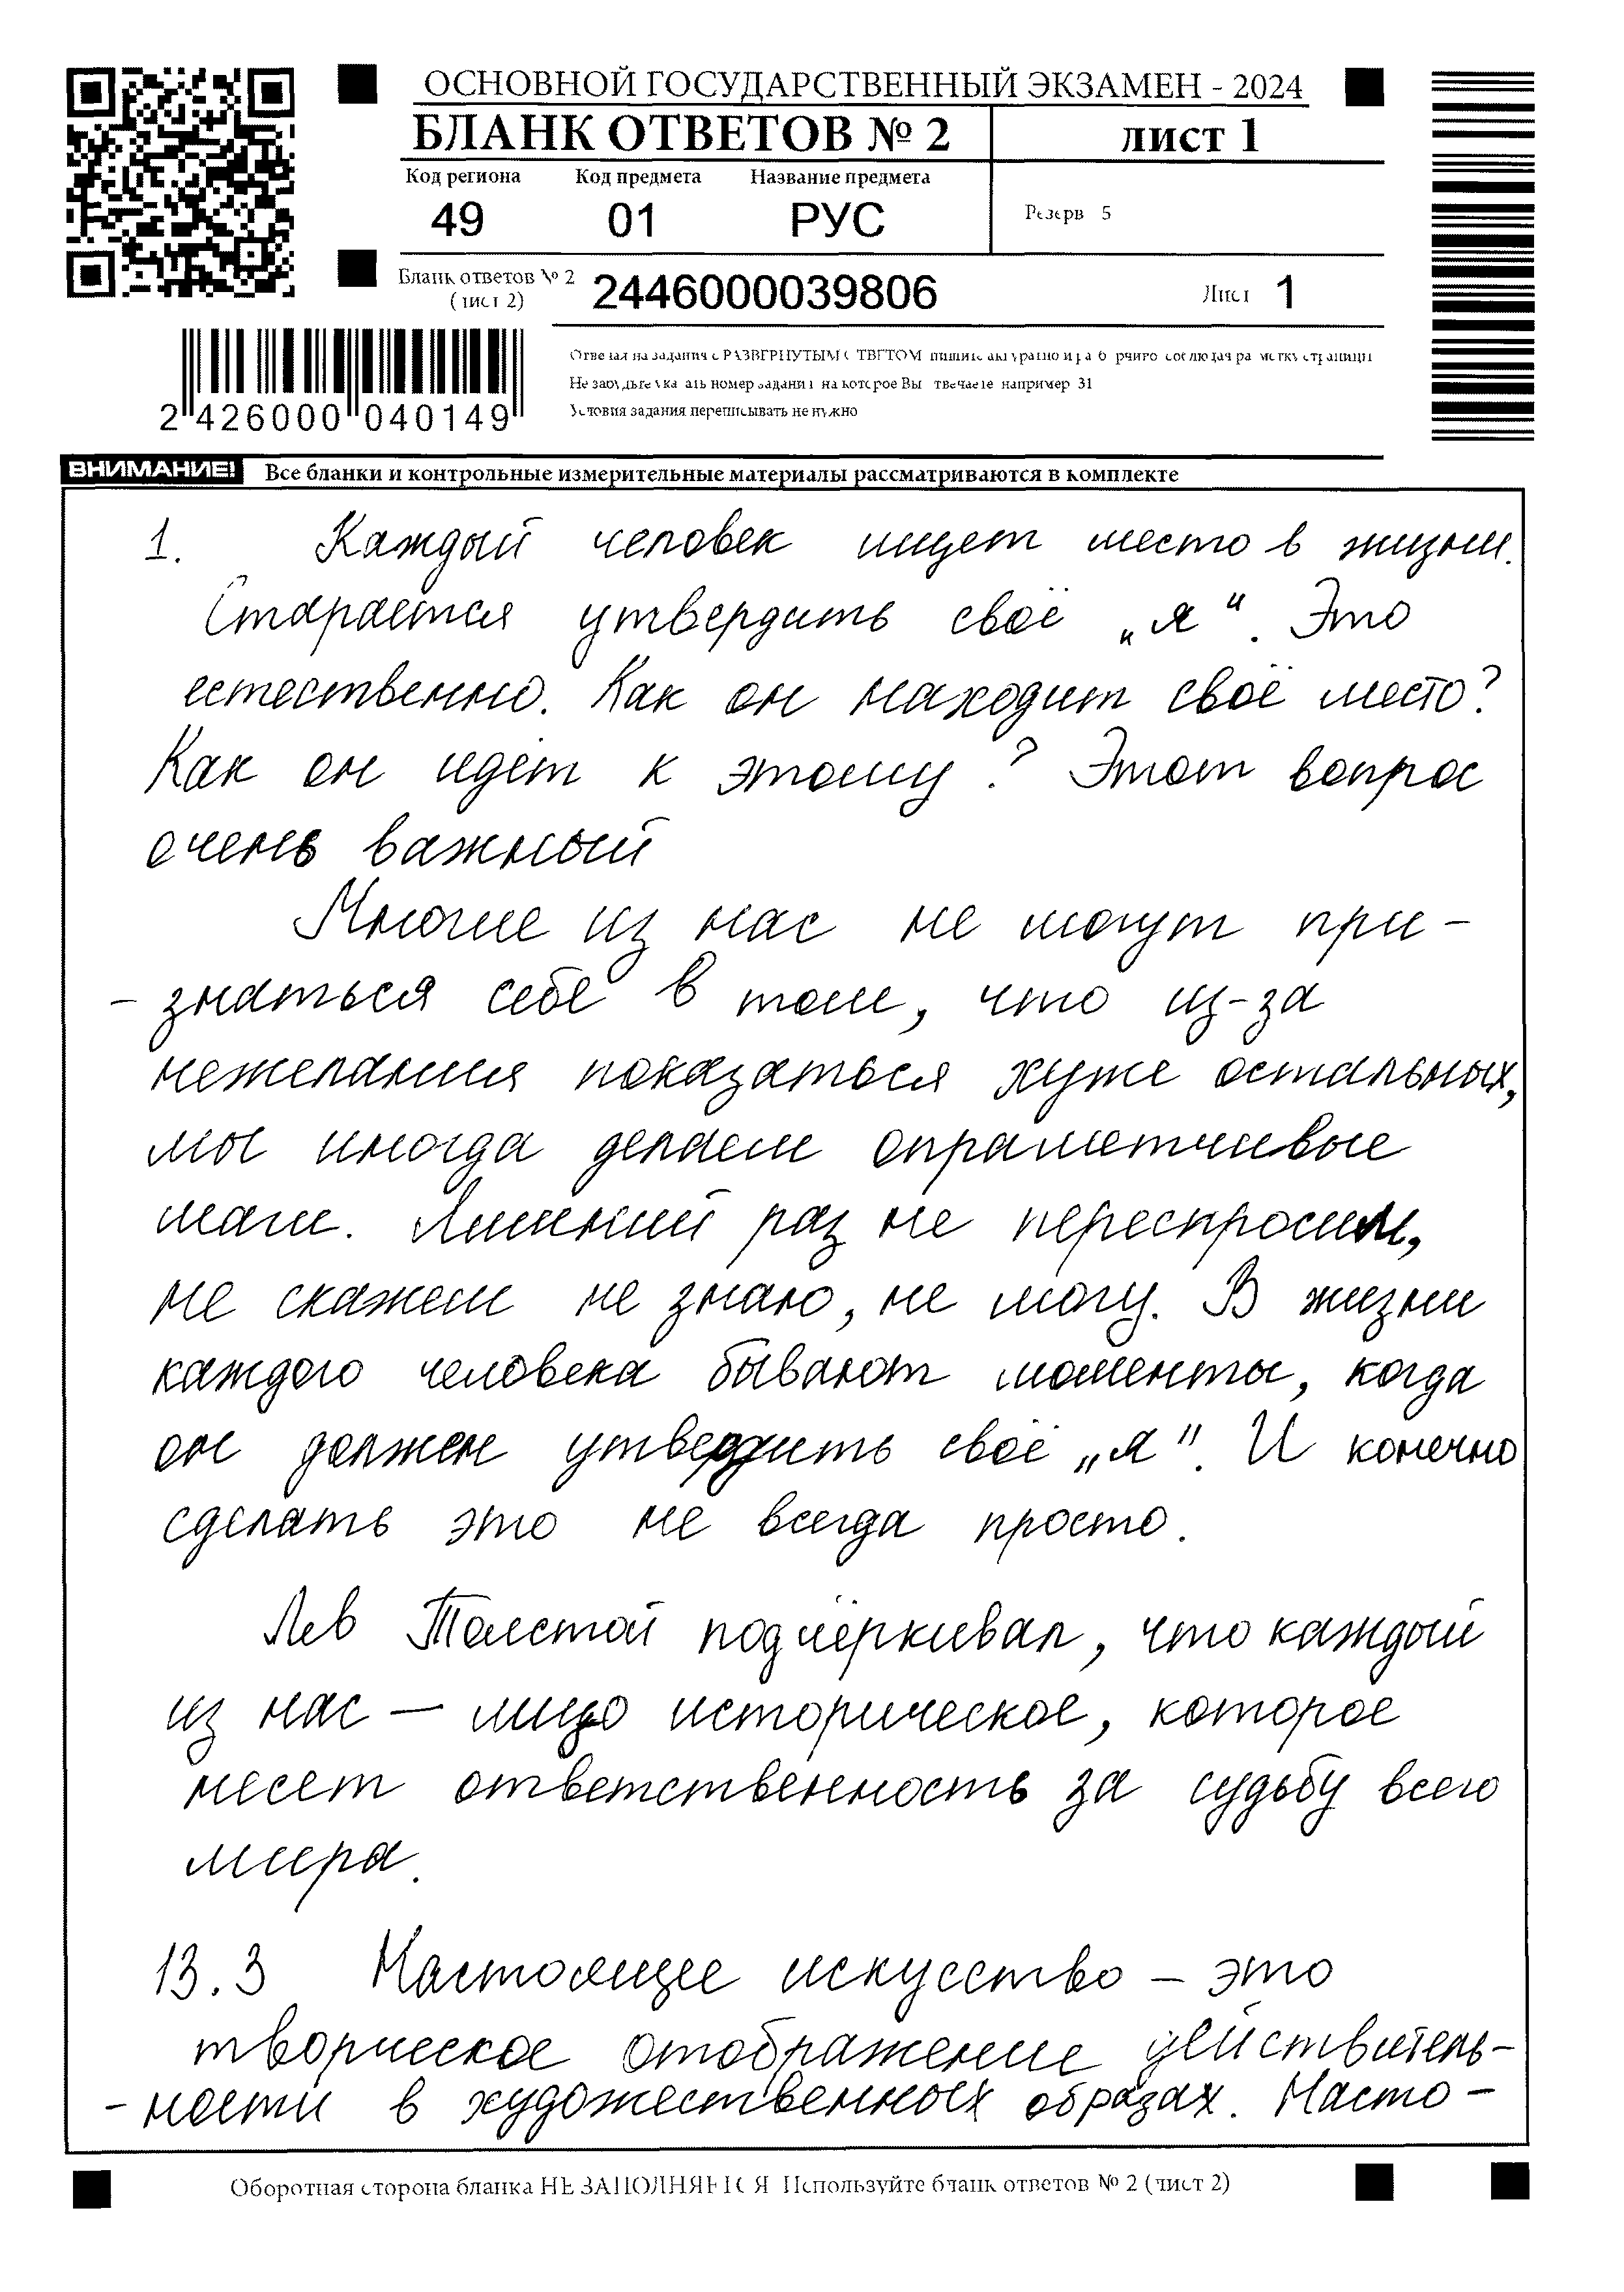 ОСНОВНОЙ ГОСУДАРСТВЕННЫЙ ЭКЗАМЕН - 2024
БЛАНК ОТВЕТОВ № 2
ЛИСТ 1
Код региона Код предмета Название предмета
49 01 РУС
Резерв 5
Бланк ответов № 2 (лист 2) 2446000039806
Лист 1
2 426000 040149
Отвечая на задания с РАЗВЕРНУТЫМ ОТВЕТОМ, пишите аккуратно и разборчиво, соблюдая разметку страницы
Не забудьте указать номер задания, на которое Вы отвечаете, например 31
Условия задания переписывать не нужно
ВНИМАНИЕ! Все бланки и контрольные измерительные материалы рассматриваются в комплекте
1. Каждый человек ищет место в жизни.
Старается утвердить своё „я“. Это
естественно. Как он находит своё место?
Как он идёт к этому? Этот вопрос
очень важный
Многие из нас не могут при-
- знаться себе в том, что из-за
нежелания показаться хуже остальных,
мы иногда делаем опрометчивые
шаги. Лишний раз не переспросим,
не скажем не знаю, не могу. В жизни
каждого человека бывают моменты, когда
он должен утвердить своё „я“. И конечно
сделать это не всегда просто.
Лев Толстой подчёркивал, что каждый
из нас — лицо историческое, которое
несет ответственность за судьбу всего
мира.
13.3 Настоящее искусство – это
творческое отображение действитель-
- ности в художественных образах. Насто -
Оборотная сторона бланка НЕ ЗАПОЛНЯЕТСЯ. Используйте бланк ответов № 2 (лист 2)